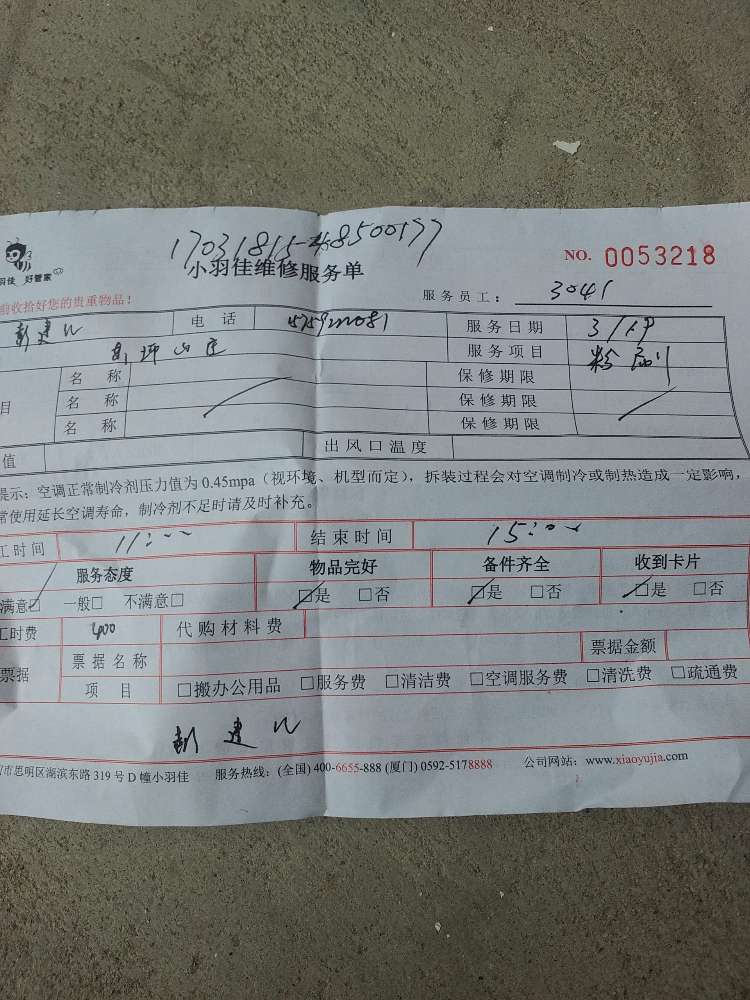 17031815-
小羽佳维修服务单
NO. 0053218
羽佳 好管家
前收拾好您的贵重物品!
服务员工: 3041
电 话
服务日期 3/
服务项目 粉刷
名 称 保修期限
目 名 称 保修期限
名 称 保修期限
值 出风口温度
提示:空调正常制冷剂压力值为 0.45mpa(视环境、机型而定),拆装过程会对空调制冷或制热造成一定影响,
常使用延长空调寿命,制冷剂不足时请及时补充。
工时间 11:00 结束时间 15:00
服务态度 物品完好 备件齐全 收到卡片
满意☑ 一般□ 不满意□ ☑是 □否 ☑是 □否 ☑是 □否
工时费 400 代购材料费
票据 票据名称 票据金额
项 目 □搬办公用品 □服务费 □清洁费 □空调服务费 □清洗费 □疏通费
市思明区湖滨东路 319 号 D 幢小羽佳 服务热线:(全国) 400-6655-888 (厦门) 0592-5178888 公司网站:www.xiaoyujia.com